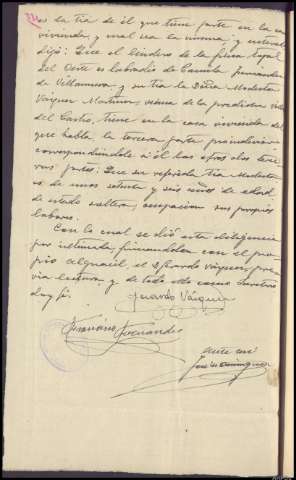 es la tia de él que tiene parte en la casa
vivienda y cual sea la misma, y enterado
dijo: Que el lindero de la finca Tapal
del Oeste es labradio de Camila Fernandez
de Villanueva y su tia la Señora Modesta
Vázquez Martinez, vecina de la
del Castro, tiene en la casa vivienda del
que habla la tercera parte proindiviso
correspondiendole a él las otras dos terce
ras partes. Que su referida tia Modesta
es de unos setenta y seis años de edad
de estado soltera, ocupacion sus propias
labores.
Con lo cual se dió esta diligencia
por terminada, firmandola con el pro
pio Alguacil, el Ricardo Vázquez, pre
via lectura y de todo ello como Secretario
doy fé.
Ricardo Vázquez
Francisco Fernandez
Ante mi
José Dominguez